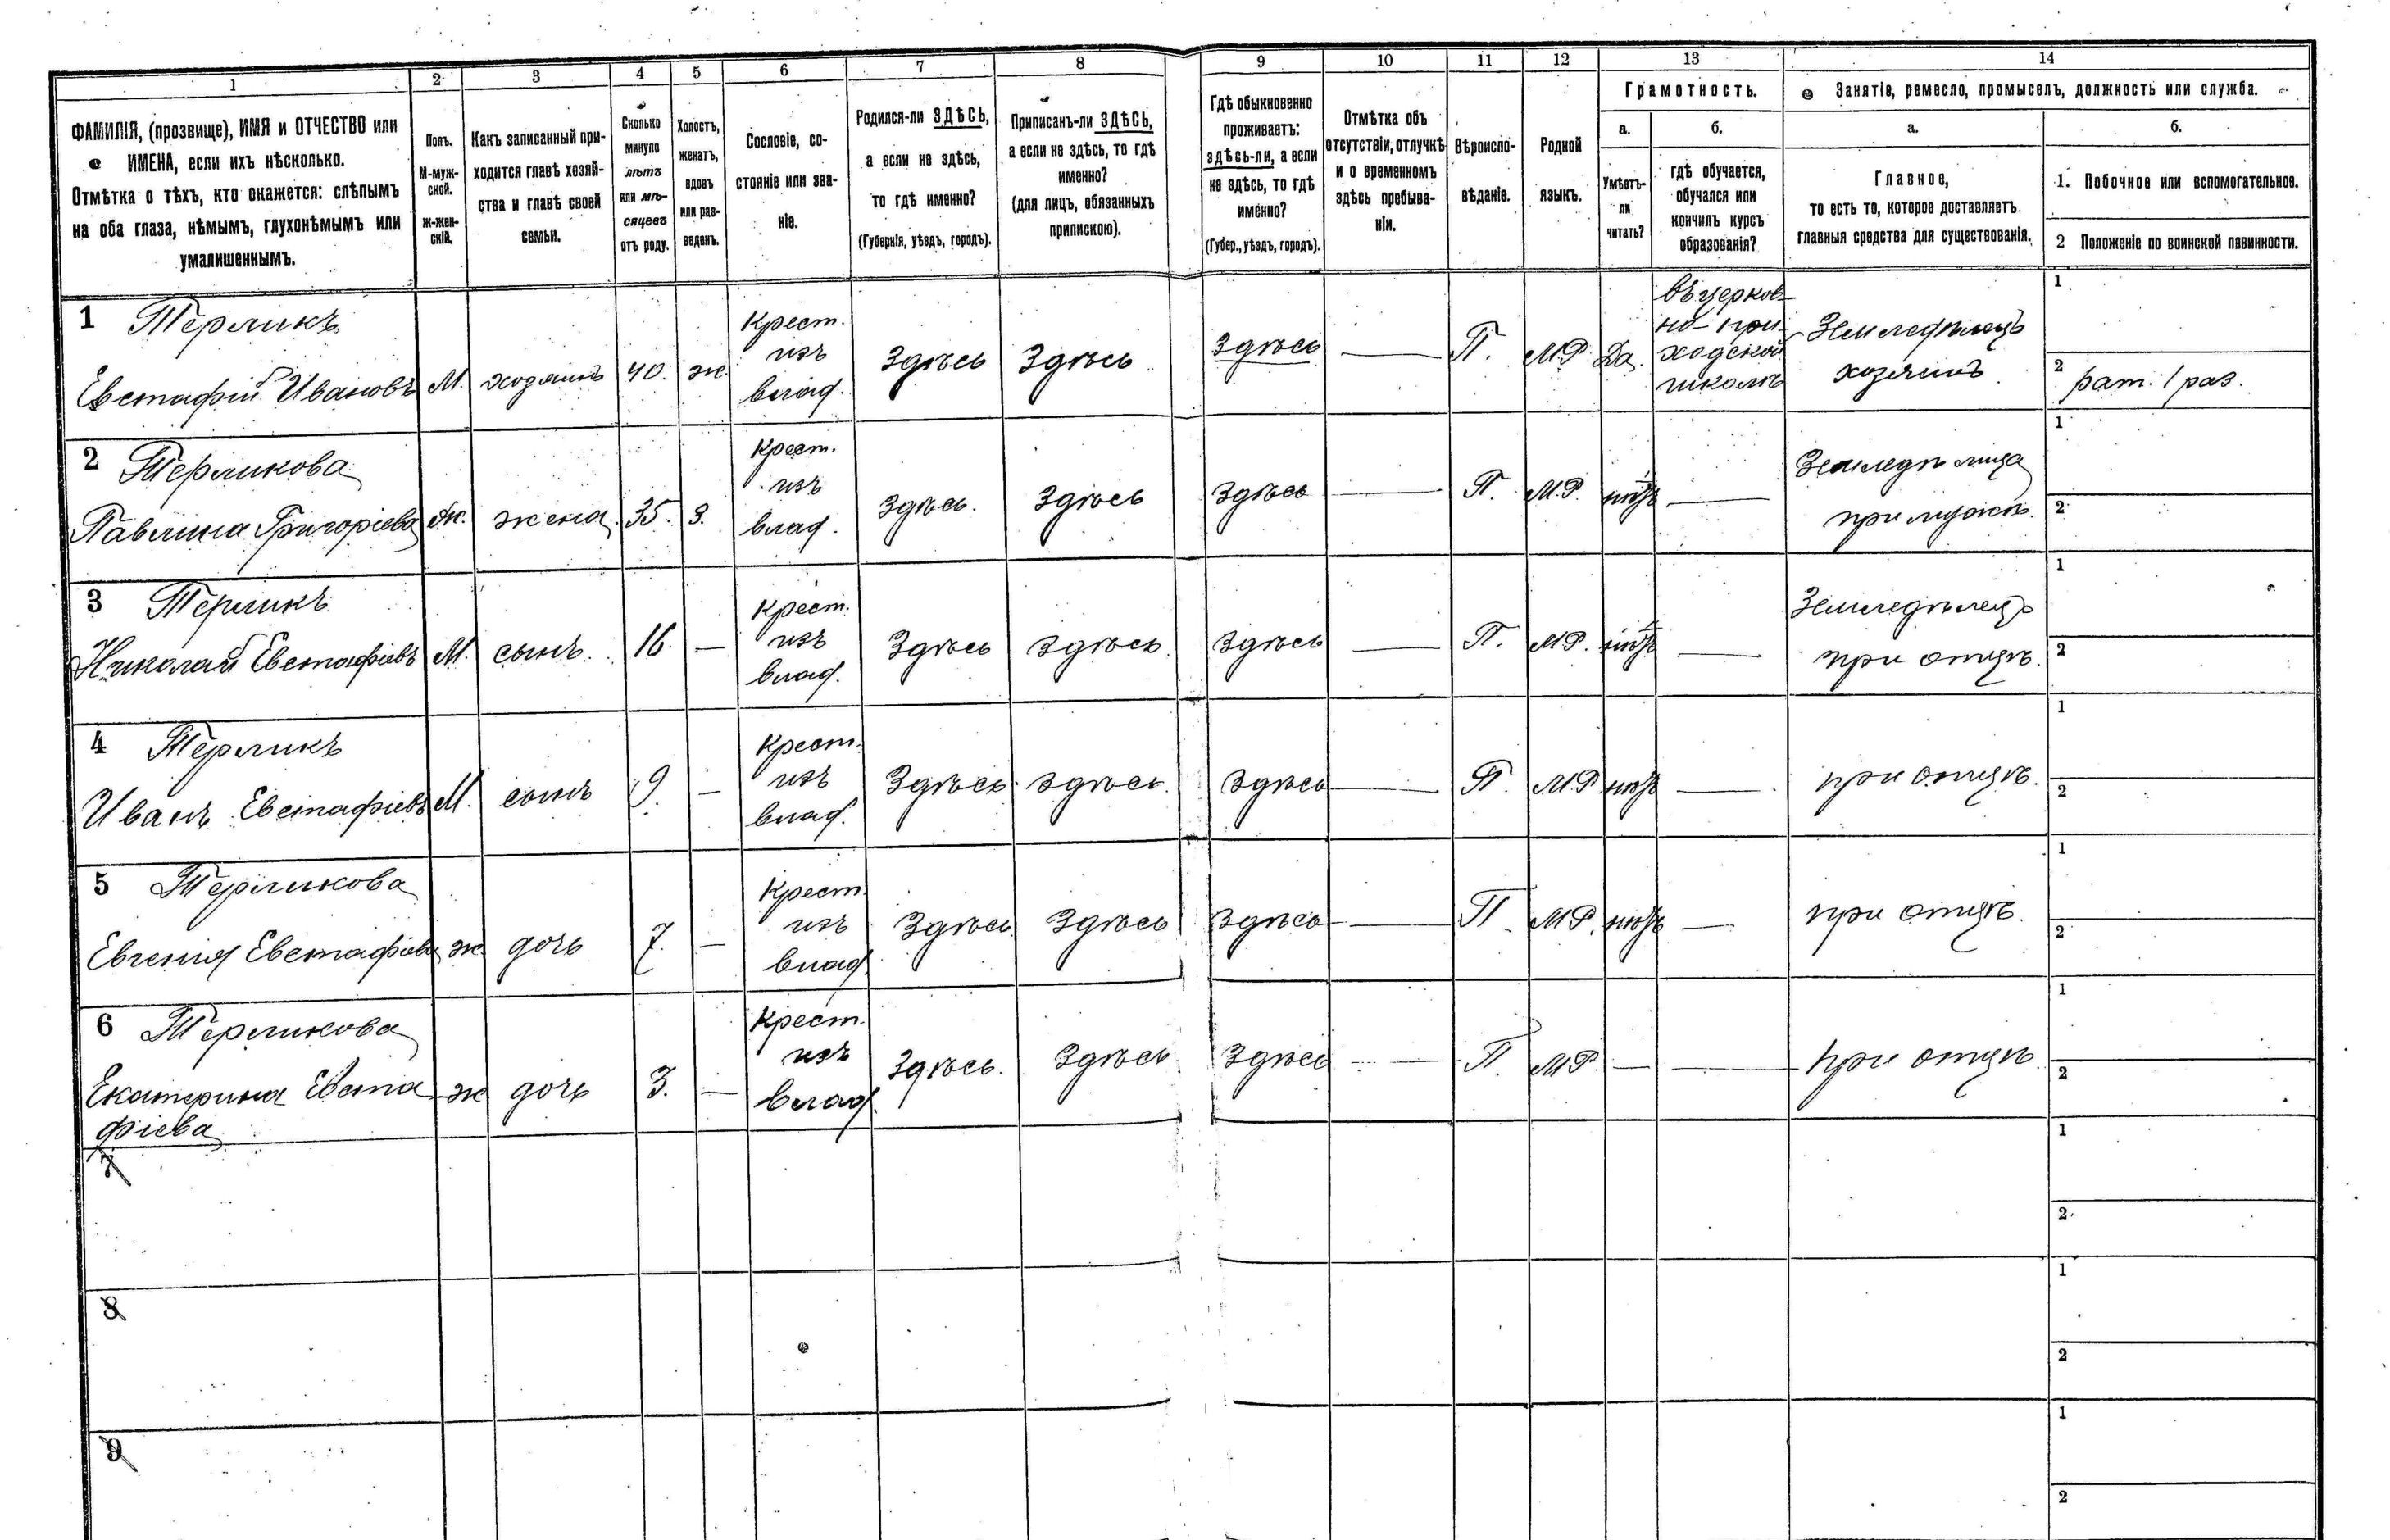 1 2 3 4 5 6 7 8 9 10 11 12 13 14
ФАМИЛІЯ, (прозвище), ИМЯ и ОТЧЕСТВО или
ИМЕНА, если ихъ нѣсколько.
Отмѣтка о тѣхъ, кто окажется: слѣпымъ
на оба глаза, нѣмымъ, глухонѣмымъ или
умалишеннымъ.
Полъ.
М-муж-
ской.
ж-жен-
скій.
Какъ записанный при-
ходится главѣ хозяй-
ства и главѣ своей
семьи.
Сколько
минуло
лѣтъ
или мѣ-
сяцевъ
отъ роду.
Холостъ,
женатъ,
вдовъ
или раз-
веденъ.
Сословіе, со-
стояніе или зва-
ніе.
Родился-ли ЗДѢСЬ,
а если не здѣсь,
то гдѣ именно?
(Губернія, уѣздъ, городъ).
Приписанъ-ли ЗДѢСЬ,
а если не здѣсь, то гдѣ
именно?
(для лицъ, обязанныхъ
припискою).
Гдѣ обыкновенно
проживаетъ:
здѣсь-ли, а если
не здѣсь, то гдѣ
именно?
(Губер., уѣздъ, городъ).
Отмѣтка объ
отсутствіи, отлучкѣ
и о временномъ
здѣсь пребыва-
ніи.
Вѣроиспо-
вѣданіе.
Родной
языкъ.
Грамотность.
а.
Умѣетъ-
ли
читать?
б.
гдѣ обучается,
обучался или
кончилъ курсъ
образованія?
Занятіе, ремесло, промыселъ, должность или служба.
а.
Главное,
то есть то, которое доставляетъ
главныя средства для существованія.
б.
1. Побочное или вспомогательное.
2 Положеніе по воинской повинности.
1 Терликъ
Евстафій Ивановъ
М.
хозяинъ
40.
ж
Крест.
изъ
влад.
Здѣсь
Здѣсь
Здѣсь
—
П.
М.Р.
Да.
въ церков-
но-при-
ходской
школѣ
Земледѣлецъ
хозяинъ
1
2 рат. 1 раз.
2 Терликова
Павлина Григоріева
Ж.
жена
35.
З.
Крест.
изъ
влад.
Здѣсь.
Здѣсь
Здѣсь
—
П.
М.Р.
нѣтъ
—
Земледѣлица
при мужѣ.
1
2
3 Терликъ
Николай Евстафіевъ
М.
сынъ.
16
—
Крест.
изъ
влад.
Здѣсь
Здѣсь.
Здѣсь
—
П.
М.Р.
нѣтъ
—
Земледѣлецъ
при отцѣ.
1
2
4 Терликъ
Иванъ Евстафіевъ
М.
сынъ
9.
—
Крест.
изъ
влад.
Здѣсь.
Здѣсь.
Здѣсь
—
П.
М.Р.
нѣтъ
—
при отцѣ.
1
2
5 Терликова
Евгенія Евстафіева
ж.
дочь
7.
—
Крест.
изъ
влад.
Здѣсь.
Здѣсь
Здѣсь
—
П.
М.Р.
нѣтъ
—
при отцѣ.
1
2
6 Терликова
Екатерина Евста
фіева
ж
дочь
3.
—
Крест.
изъ
влад.
Здѣсь.
Здѣсь
Здѣсь
—
П.
М.Р.
—
—
при отцѣ.
1
2
7
1
2
8
1
2
9
1
2